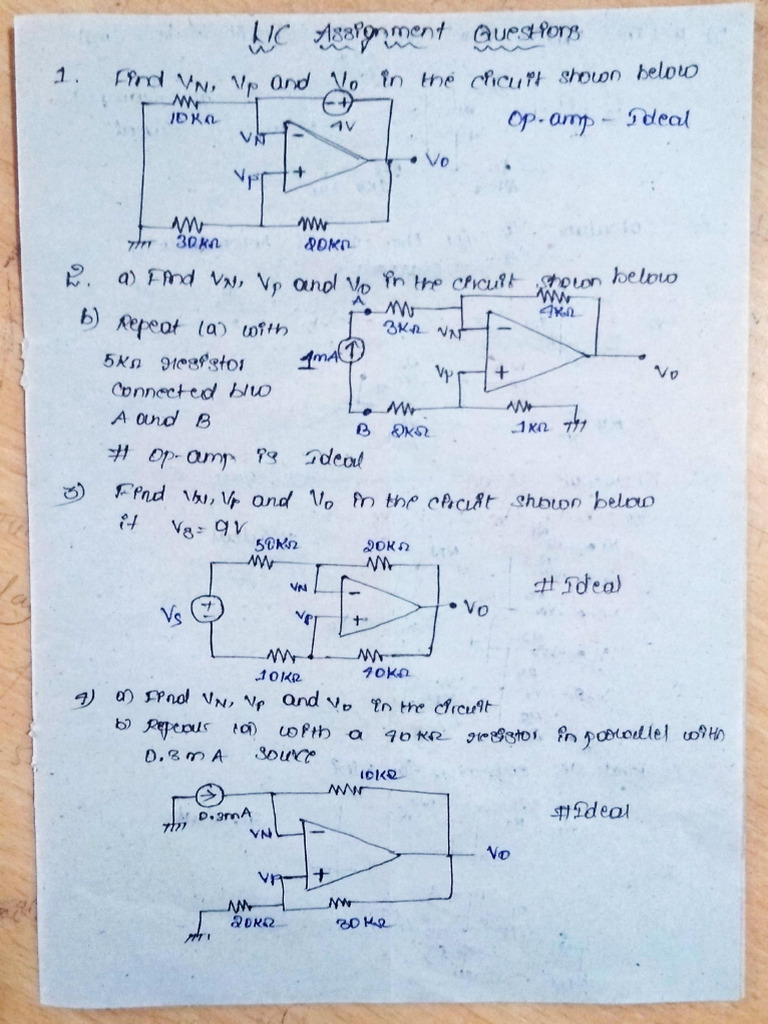 LIC Assignment Questions
1. Find VN, Vp and Vo in the circuit shown below
Op-amp - Ideal
10KΩ
- +
4V
VN
-
Vp
+
Vo
30KΩ
20KΩ
2. a) Find VN, Vp and Vo in the circuit shown below
b) Repeat (a) with
5KΩ resistor
connected b/w
A and B
# Op-amp is Ideal
A
3KΩ
4KΩ
VN
-
1mA
Vp
+
Vo
B
2KΩ
1KΩ
3) Find VN, Vp and Vo in the circuit shown below
if Vs = 9V
50KΩ
20KΩ
# Ideal
VN
-
Vs
+
-
Vp
+
Vo
10KΩ
40KΩ
4) a) Find VN, Vp and Vo in the circuit
b) Repeat (a) with a 40KΩ resistor in parallel with
0.3mA source
10KΩ
# Ideal
0.3mA
VN
-
Vo
Vp
+
20KΩ
30KΩ